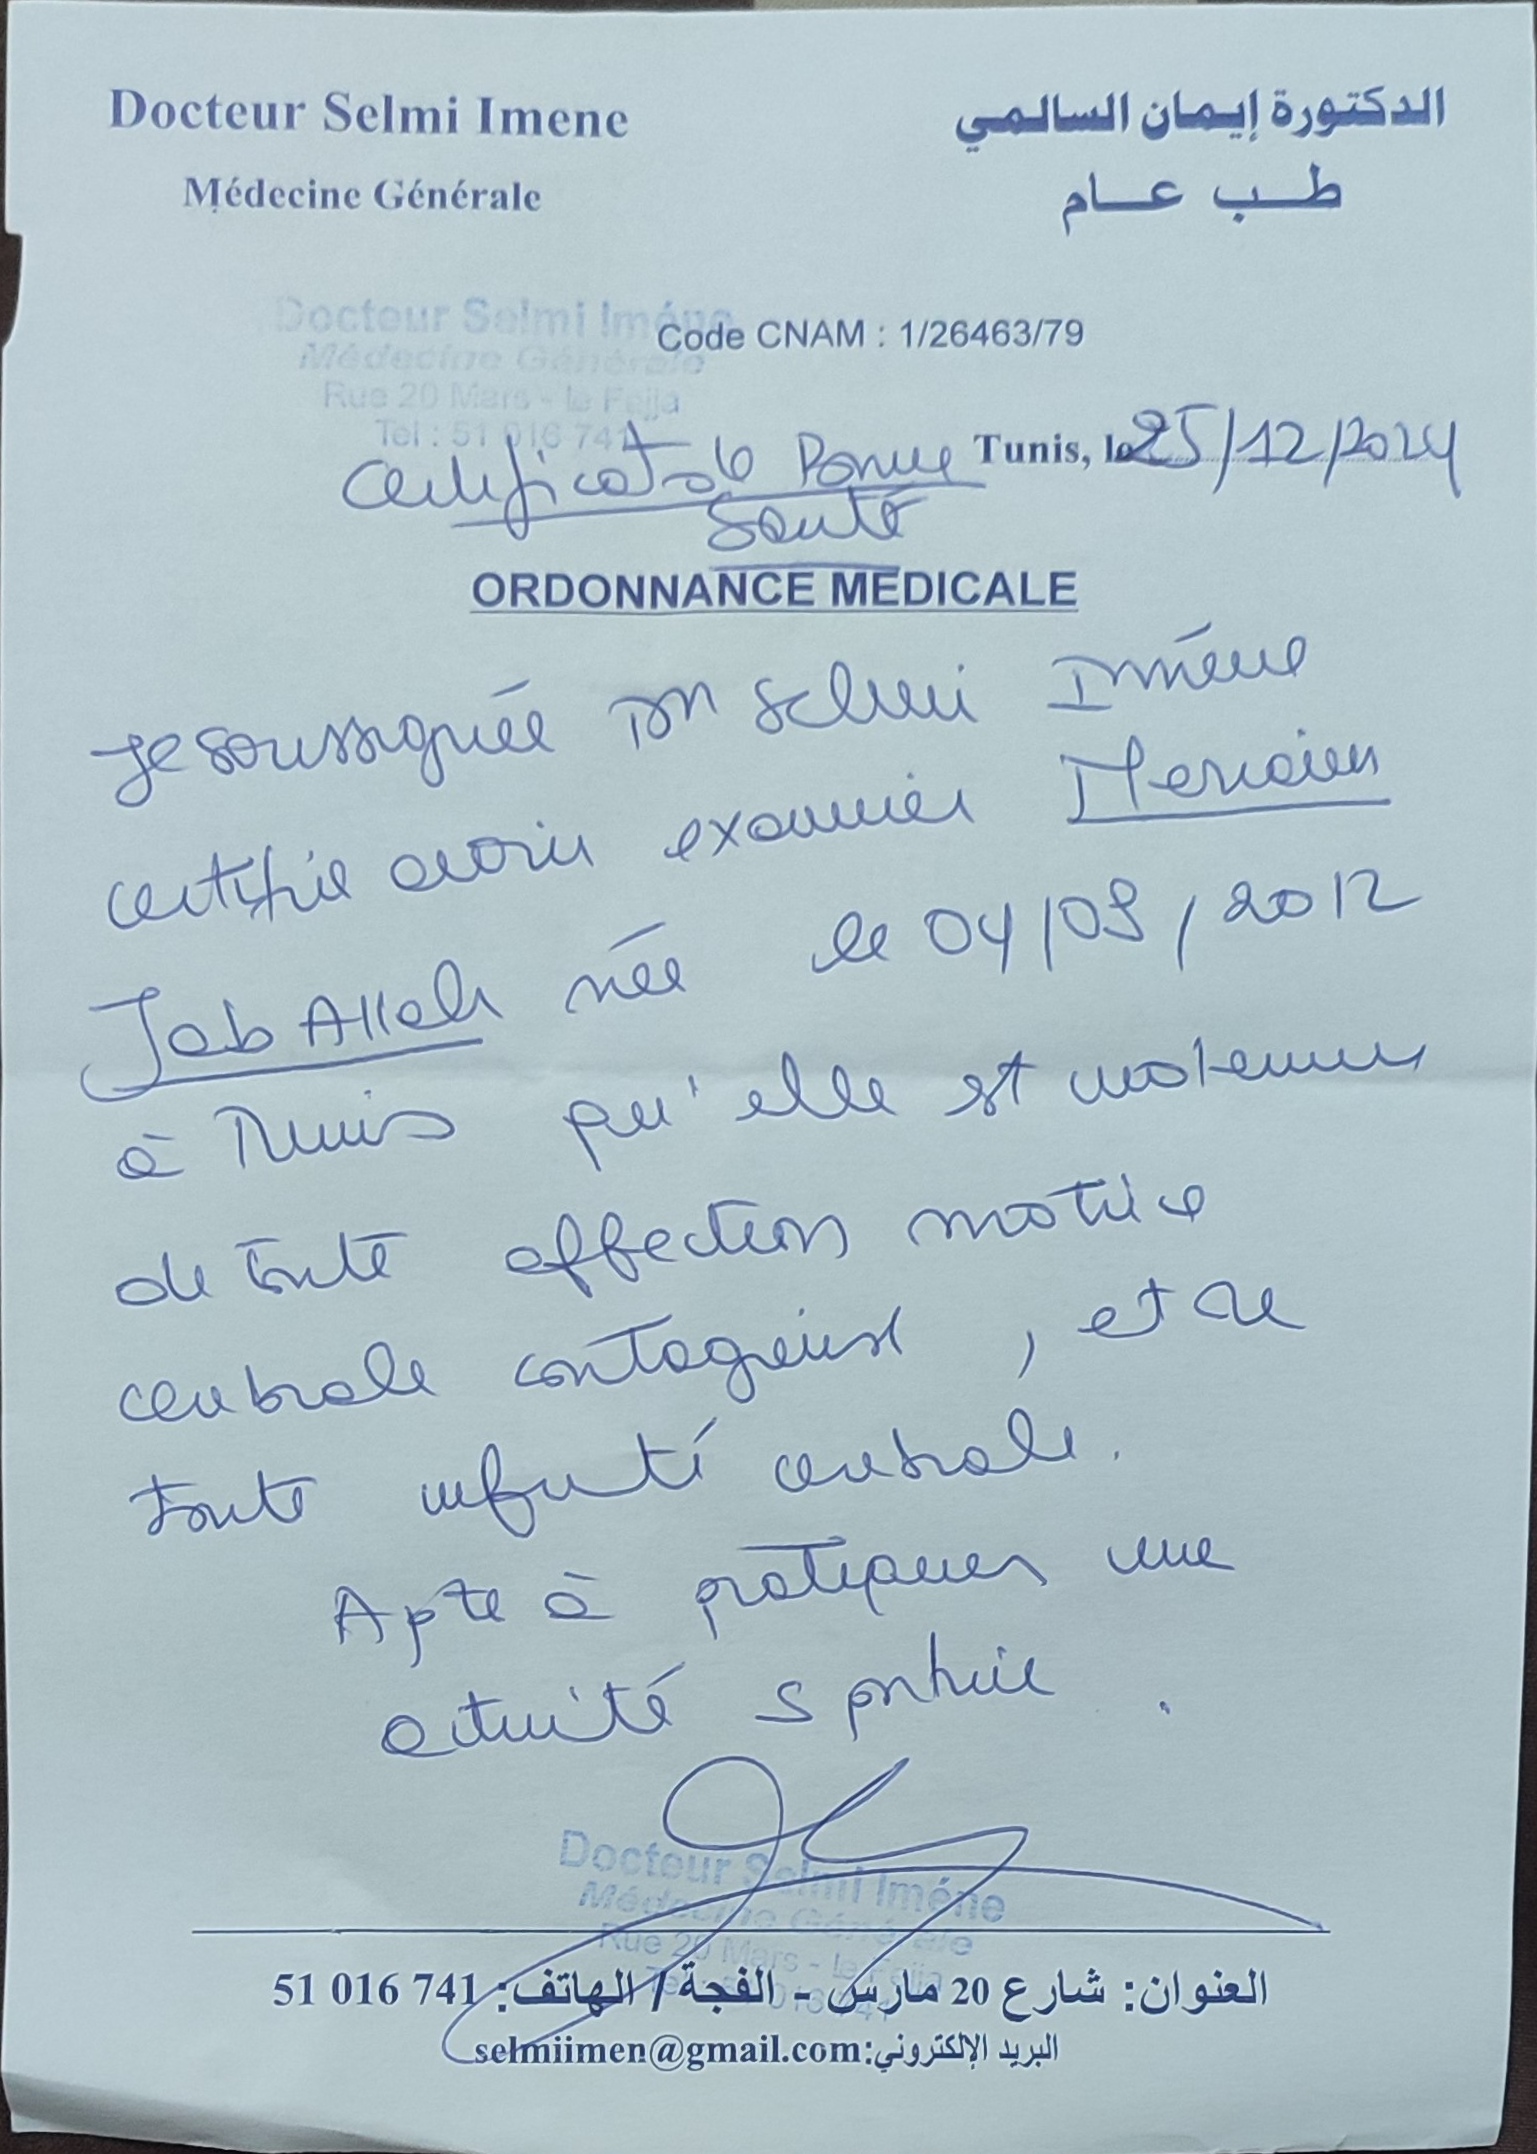 Docteur Selmi Imene
Médecine Générale
الدكتورة إيمان السالمي
طب عام
Docteur Selmi Iméne
Médecine Générale
Rue 20 Mars - le Fejja
Tel : 51 016 741
Code CNAM : 1/26463/79
Tunis, le 25/12/2024
Certificat de Bonne
Santé
ORDONNANCE MEDICALE
Je soussignée Dr Selmi Imène
certifie avoir examiner Meriem
Jab Allah née le 04/09/2012
à Tunis qu'elle est
de toute affection motrice
cenbrale contagieuse, et de
toute cenbrale.
Apte à pratiquer une
activité sportive.
Docteur Selmi Iméne
Médecine Générale
Rue 20 Mars - le Fejja
العنوان: شارع 20 مارس - الفجة / الهاتف: 51 016 741
البريد الإلكتروني: selmiimen@gmail.com